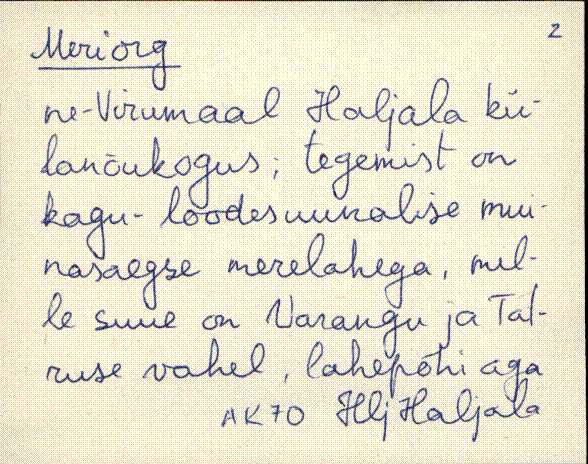 Meriorg
2
ne-Virumaal Haljala kü-
lanõukogus; tegemist on
kagu-loodesuunalise muu-
nasaegse merelahega, mil-
le suue on Varangu ja Tat-
ruse vahel, lahepõhi aga
AK70 Hlj Haljala